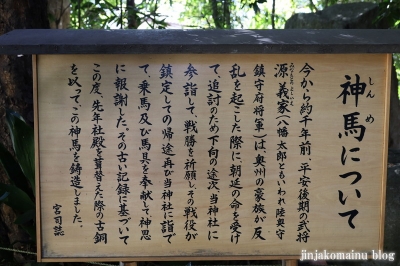 神馬について
しんめ
今から約千年前、平安後期の武将
源義家(八幡太郎ともいわれ陸奥守
鎮守府将軍)は奥州の豪族が反
乱を起こした際に、朝廷の命を受け
て、追討のため下向の途次、当神社に
参詣して、戦勝を祈願しその戦役が
鎮定しての帰途再び当神社に詣で
て、乗馬及び馬具を奉献して神恩
に報謝した。その古い記録に基づいて
この度、先年社殿を葺替えた際の古銅
を以って、この神馬を鋳造しました。
宮司誌
jinjakomainu blog